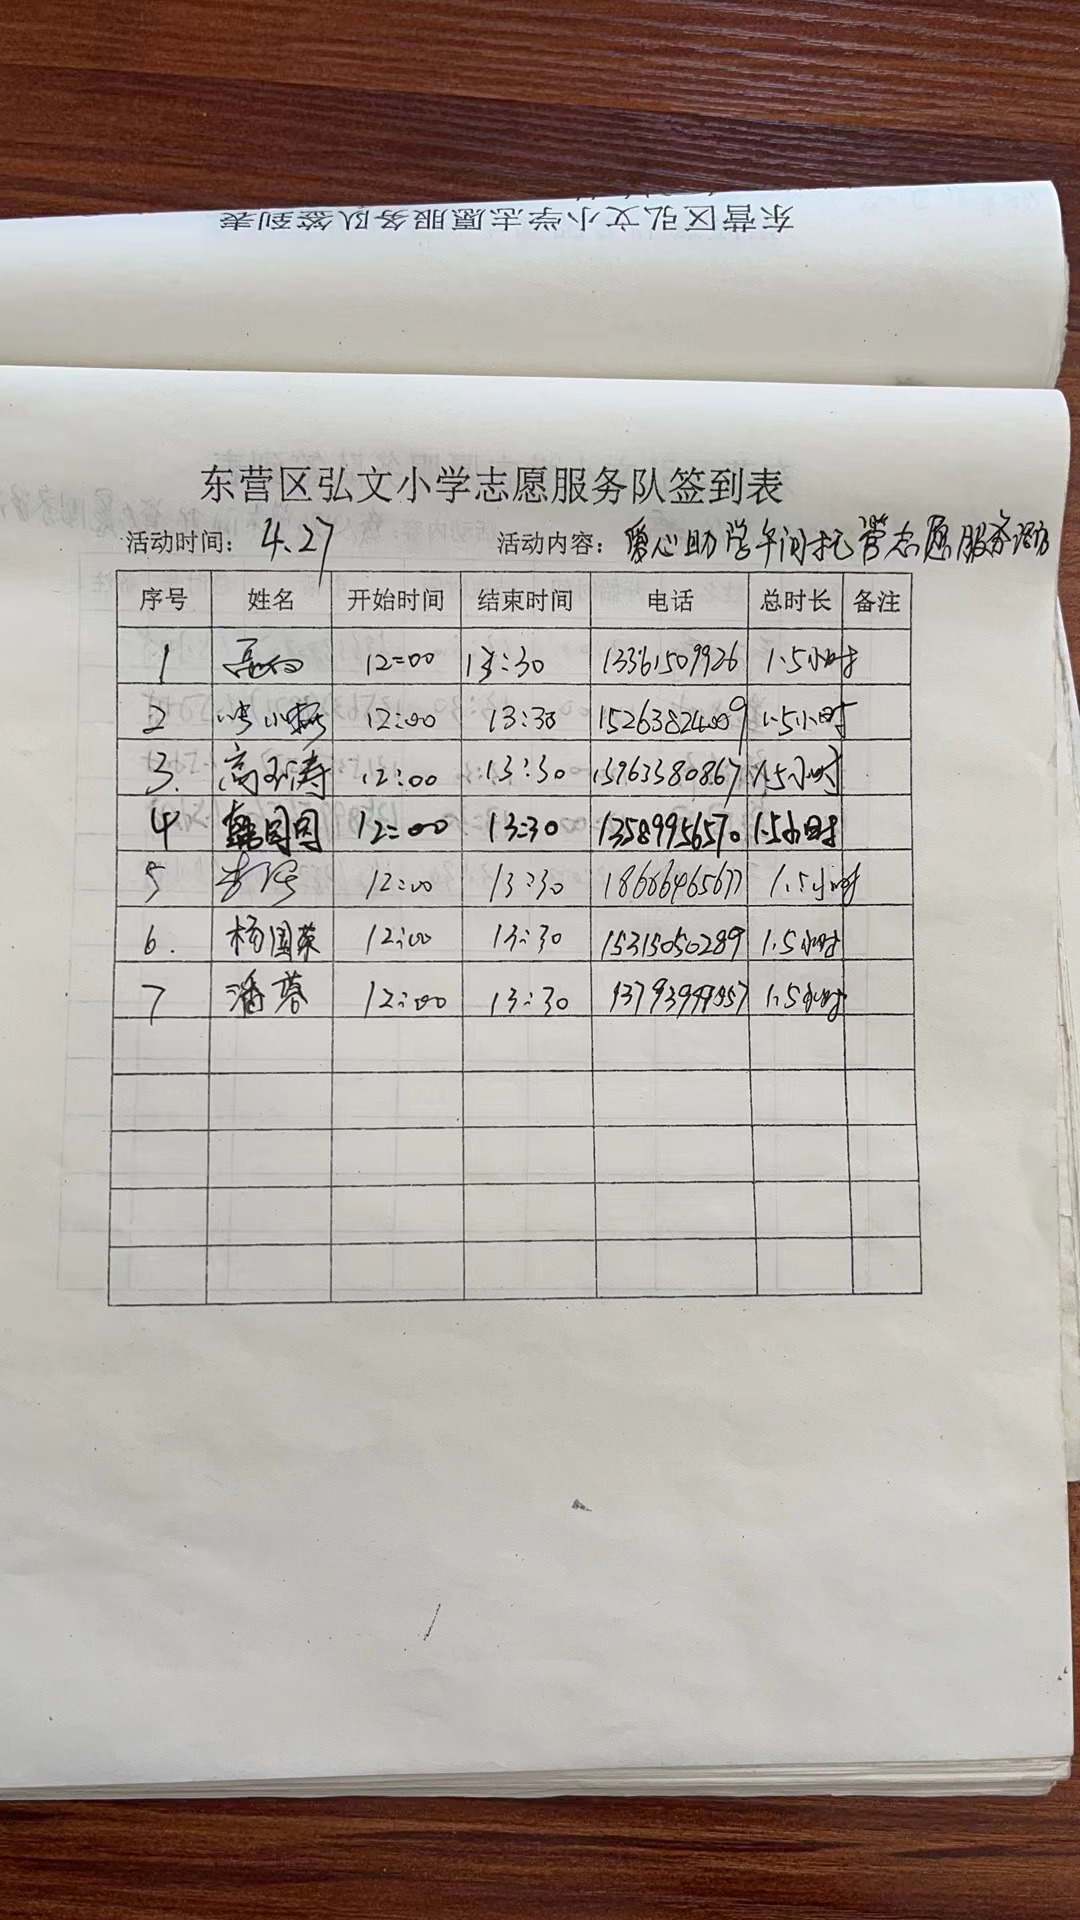 东营区弘文小学志愿服务队签到表
东营区弘文小学志愿服务队签到表
活动时间: 4.27 活动内容: 爱心助学午间托管志愿服务活动
序号 姓名 开始时间 结束时间 电话 总时长 备注
1 12:00 13:30 13361509926 1.5小时
2 12:00 13:30 15263824009 1.5小时
3. 高玉涛 12:00 13:30 13963380867 1.5小时
4 韩团团 12:00 13:30 13589956570 1.5小时
5 12:00 13:30 18606465677 1.5小时
6. 杨国英 12:00 13:30 15315050289 1.5小时
7 潘蓉 12:00 13:30 1.5小时